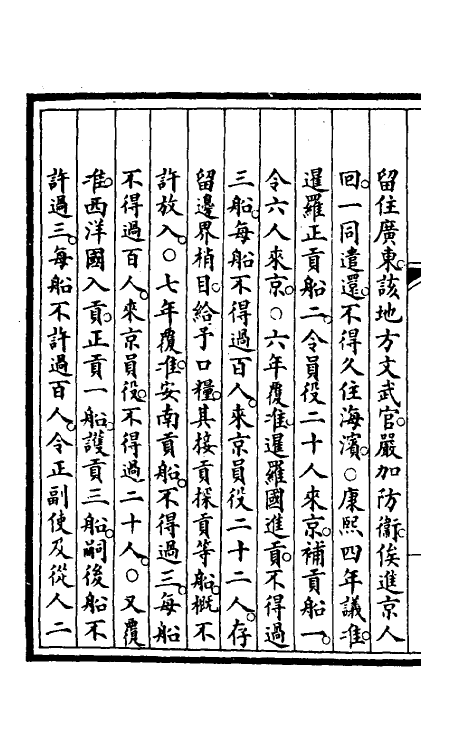 留住廣東。該地方文武官。嚴加防衞。俟進京人
回。一同遣還。不得久住海濱。○康熙四年議准。
暹羅正貢船二。令員役二十人來京。補貢船一。
令六人來京。○六年覆准。暹羅國進貢。不得過
三船。每船不得過百人。來京員役二十二人。存
留邊界梢目。給予口糧。其接貢探貢等船。槪不
許放入。○七年覆准。安南貢船。不得過三。每船
不得過百人。來京員役。不得過二十人。○又覆
准。西洋國入貢。正貢一船。護貢三船。嗣後船不
許過三。每船不許過百人。令正副使及從人二